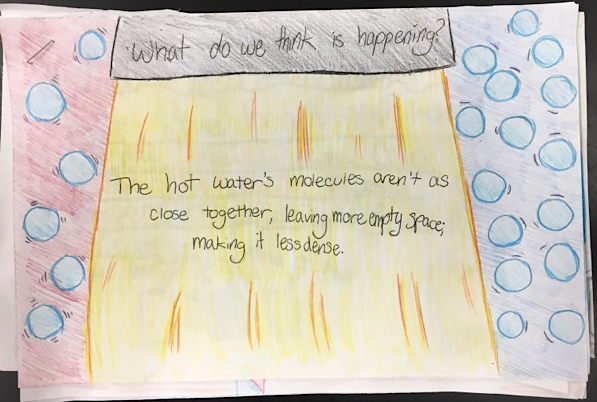 What do we think is happening?
The hot water's molecules aren't as
close together, leaving more empty space;
making it less dense.